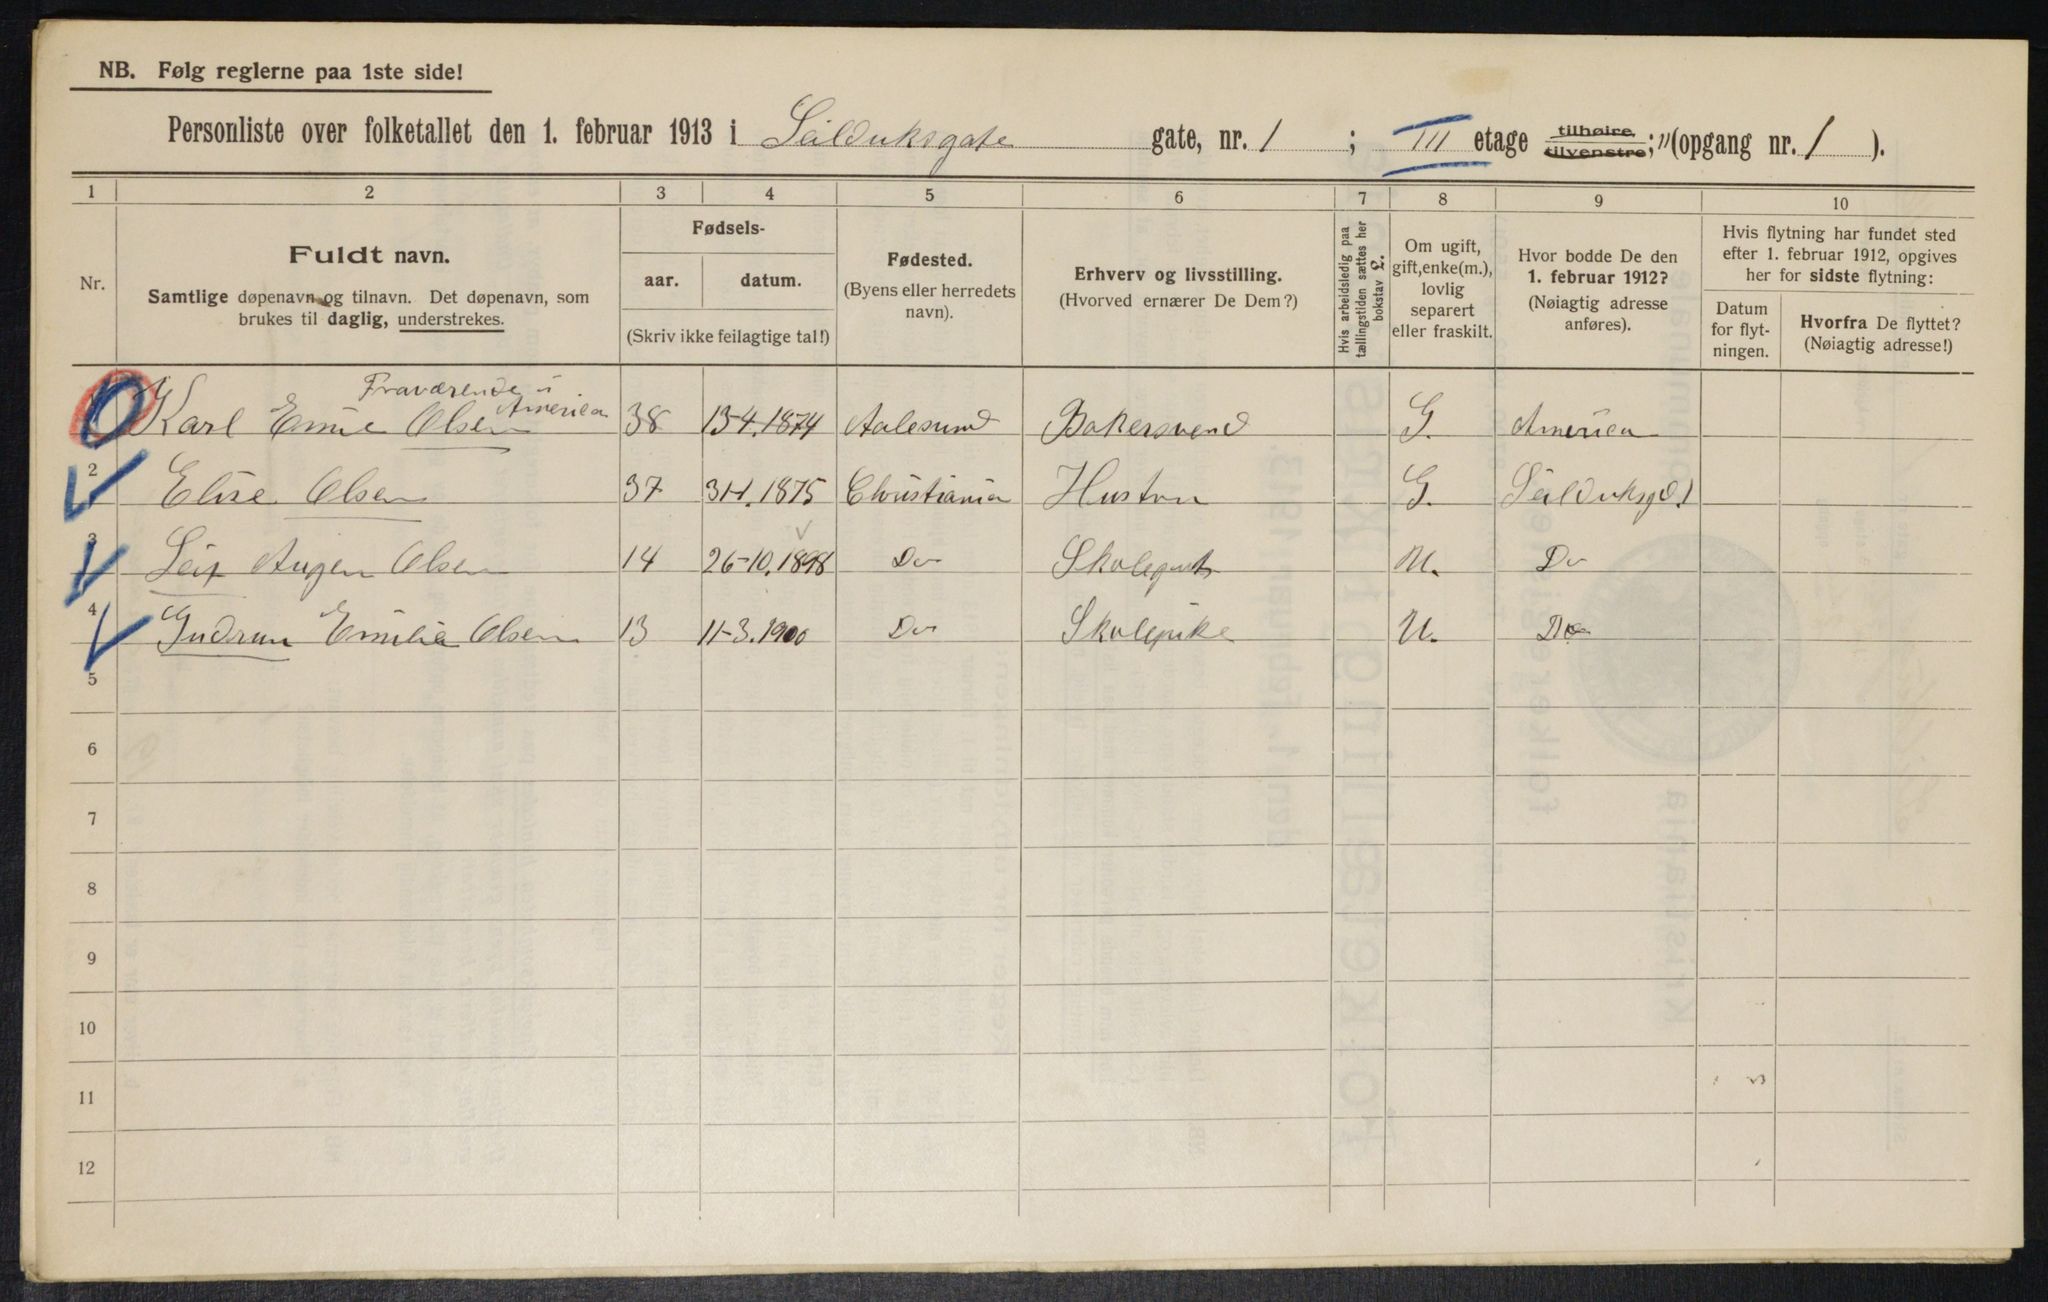 NB. Følg reglerne paa 1ste side!
Personliste over folketallet den 1. februar 1913 i Seilduksgate gate, nr. 1 ; III etage tilhøire tilvenstre; " (opgang nr. 1 ).
1 2 3 4 5 6 7 8 9 10
Nr.
Fuldt navn.
Samtlige døpenavn og tilnavn. Det døpenavn, som
brukes til daglig, understrekes.
Fødsels-
aar. datum.
(Skriv ikke feilagtige tal!)
Fødested.
(Byens eller herredets
navn).
Erhverv og livsstilling.
(Hvorved ernærer De Dem?)
Hvis arbeidsledig paa
tællingstiden sættes her
bokstav L.
Om ugift,
gift, enke(m.),
lovlig
separert
eller fraskilt.
Hvor bodde De den
1. februar 1912?
(Nøiagtig adresse
anføres).
Hvis flytning har fundet sted
efter 1. februar 1912, opgives
her for sidste flytning:
Datum
for flyt-
ningen.
Hvorfra De flyttet?
(Nøiagtig adresse!)
Fraværende i
America
Karl Emil Olsen 38 13-4.1874 Aalesund Bakersvend G. America
2 Elise Olsen 37 31-1.1875 Christiania Hustru G. Seilduksgd. 1
3 Leif Olsen 14 26-10.1898 Do Skolegut U. Do
4 Gudrun Emilie Olsen 13 11-3.1900 Do Skolepike U. Do
5
6
7
8
9
10
11
12